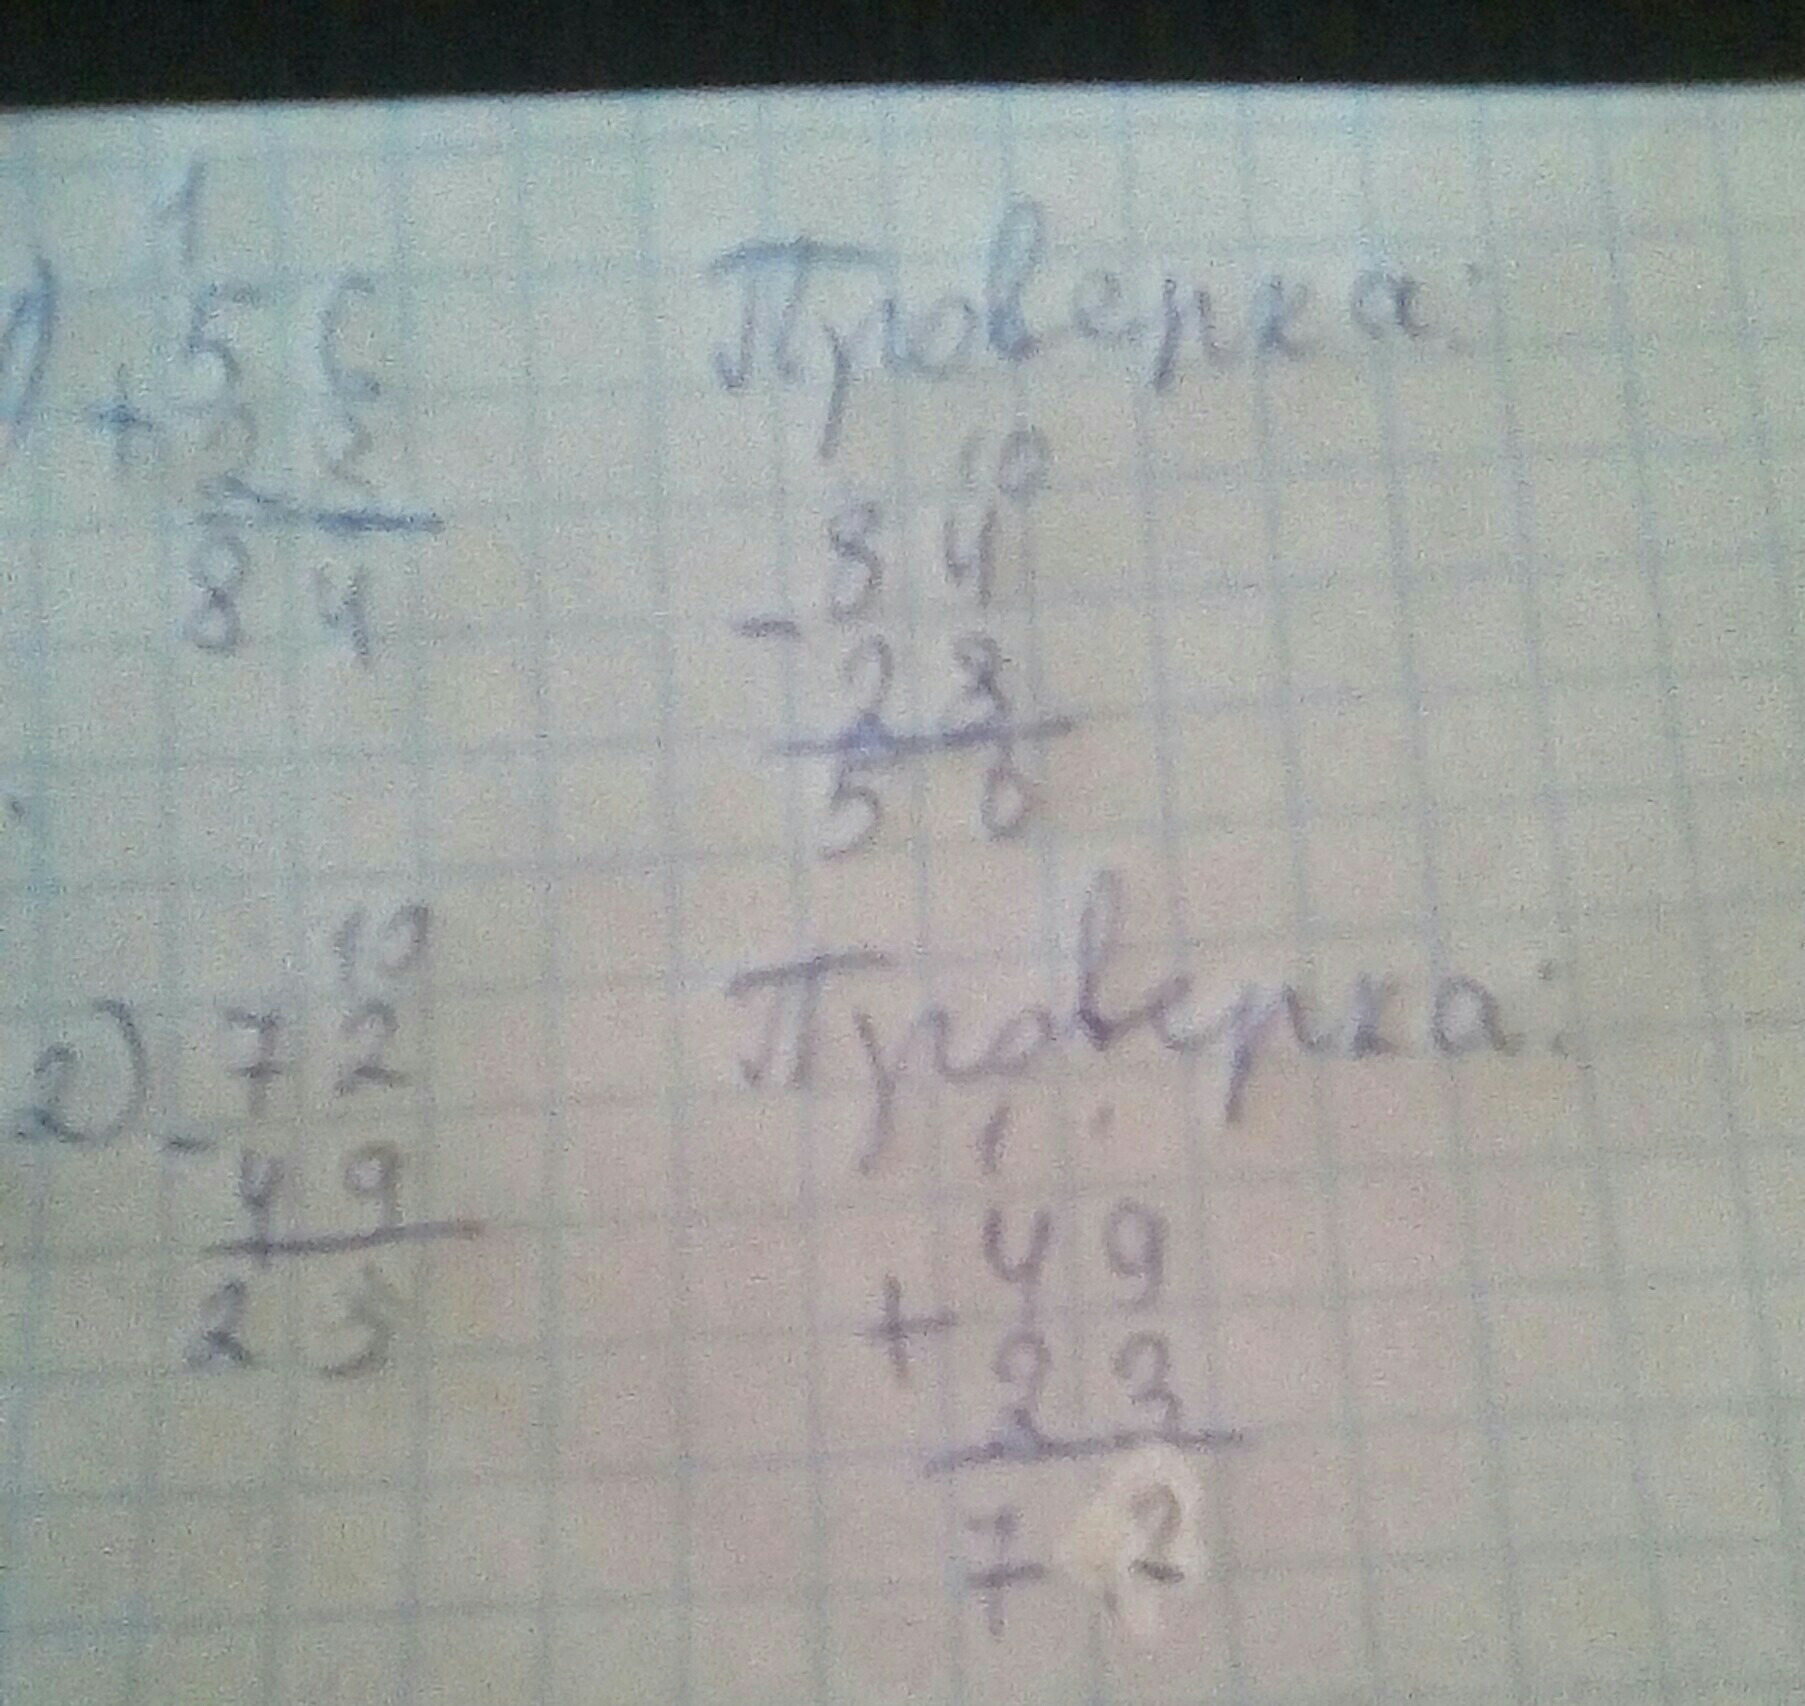 1
1) 5 6
+ 2 2
8 4
Проверка:
10
8 4
-
2 8
5 6
10
2) 7 2
-
4 9
2 3
Проверка:
1
4 9
+
2 3
7 2